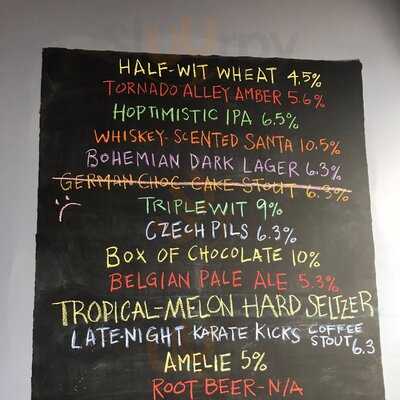 HALF-WIT WHEAT 4.5%
TORNADO ALLEY AMBER 5.6%
HOPTIMISTIC IPA 6.5%
WHISKEY-SCENTED SANTA 10.5%
BOHEMIAN DARK LAGER 6.3%
GERMAN CHOC. CAKE STOUT 6.3%
TRIPLEWIT 9%
CZECH PILS 6.3%
BOX OF CHOCOLATE 10%
BELGIAN PALE ALE 5.3%
TROPICAL-MELON HARD SELTZER
LATE-NIGHT KARATE KICKS COFFEE STOUT 6.3
AMELIE 5%
ROOT BEER-N/A